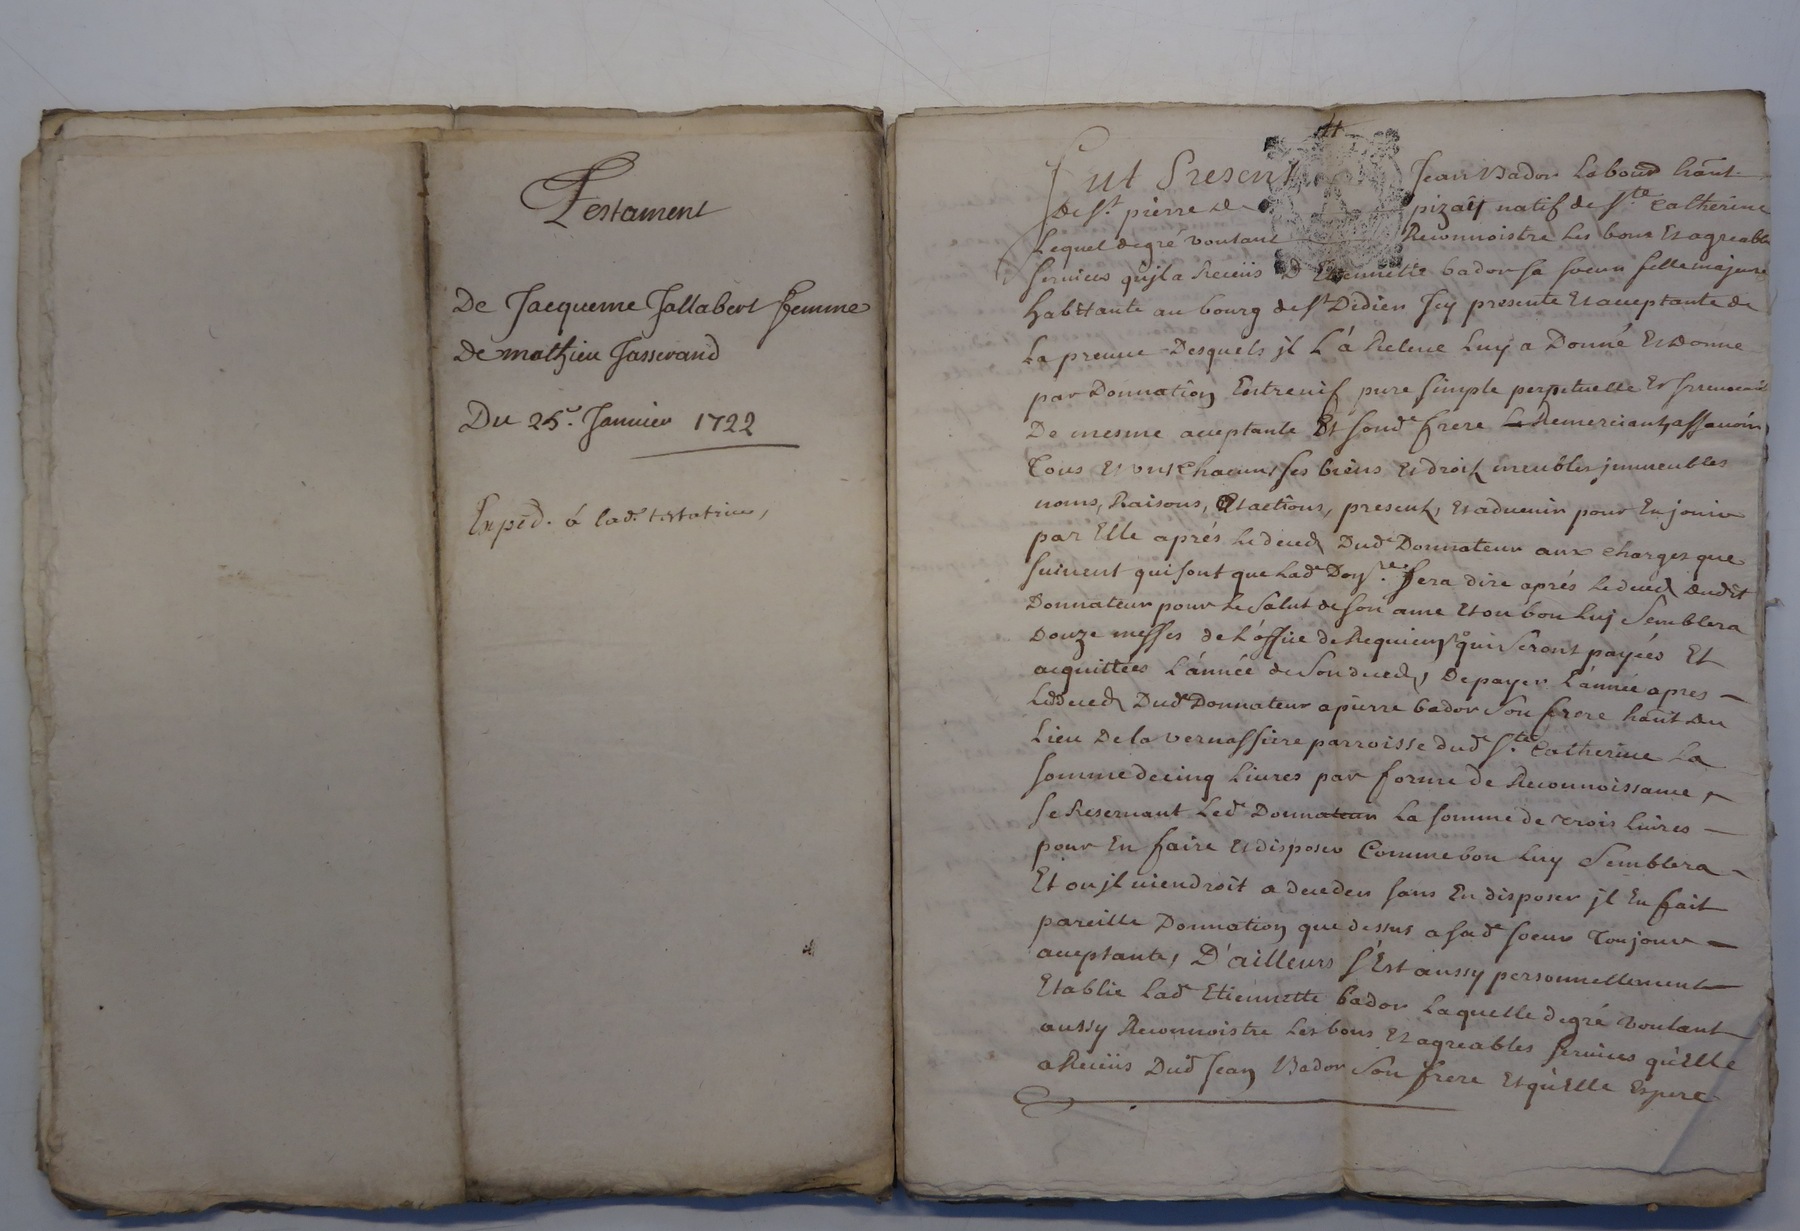 Testament
De Jacqueme Jallabert femme
De mathieu Jasserand
Du 25e. Janvier 1722
Exped. á lad. testatrice,
Fut Present Jean Bador Labour habnt
De St. pierre de pizaÿ natif de Ste Catherine
Lequel de gré voulant Reconnoistre Les bons Et agreable
services quil a Receüs D Etiennette bador sa soeur fille majeure
habitante au bourg de St Didier Icy presente Et acceptante de
La preuue Desquels il L'á Releué Luy a Donné Et Donne
par Donnation Entreuif pure simple perpetuelle Et Irreuocable
De mesme acceptante Et sond. frere Remerciant, assauoir
Tous Et vns Chacuns ses biens Et droits meubles immeubles
noms, Raisons, Et actions, presents, Et aduenir pour En jouir
par Elle aprés le deceds Dud. Donnateur aux charges que
suiuent qui sont que Lad. Doy.re fera dire aprés Le deceds dudit
Donnateur pour Le Salut de son ame Et ou bon Luj Semblera
Douze messes de L'office de Requiem qui seront payées Et
acquittées L'ánnée de Son deceds, De payer L'ánnée apres —
Le deceds Dud. Donnateur a pierre bador Son frere habnt Du
Lieu De la vernassiere parroisse dud. Ste. Catherine La
somme de cinq Liures par forme de Reconnoissance,
se Reseruant Led. Donnateur La somme de trois Liures —
pour En faire Et disposer Comme bon Luy Semblera —
Et ou jl uiendroit a deceder sans En disposer jl En fait
pareille Donnation que dessus a sad. soeur Toujours —
acceptante, D'ailleurs s'Est aussy personnellement
Etablie Lad. Etiennette bador Laquelle de gré voulant
aussy Reconnoistre Les bons Et agreables seruices qu'Elle
a Receüs Dud. Jean Bador Son frere Et qu'Elle Espere